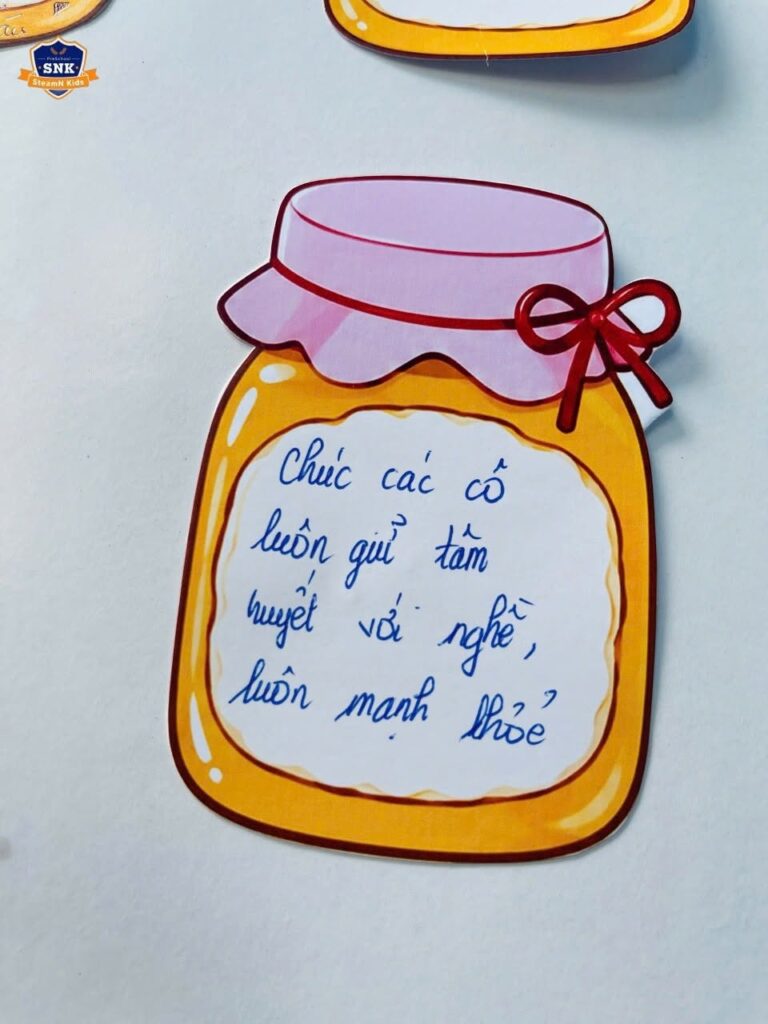 PreSchool
SNK
SteamN Kids
Chúc các cô
luôn gửi tâm
huyết với nghề,
luôn mạnh khỏe